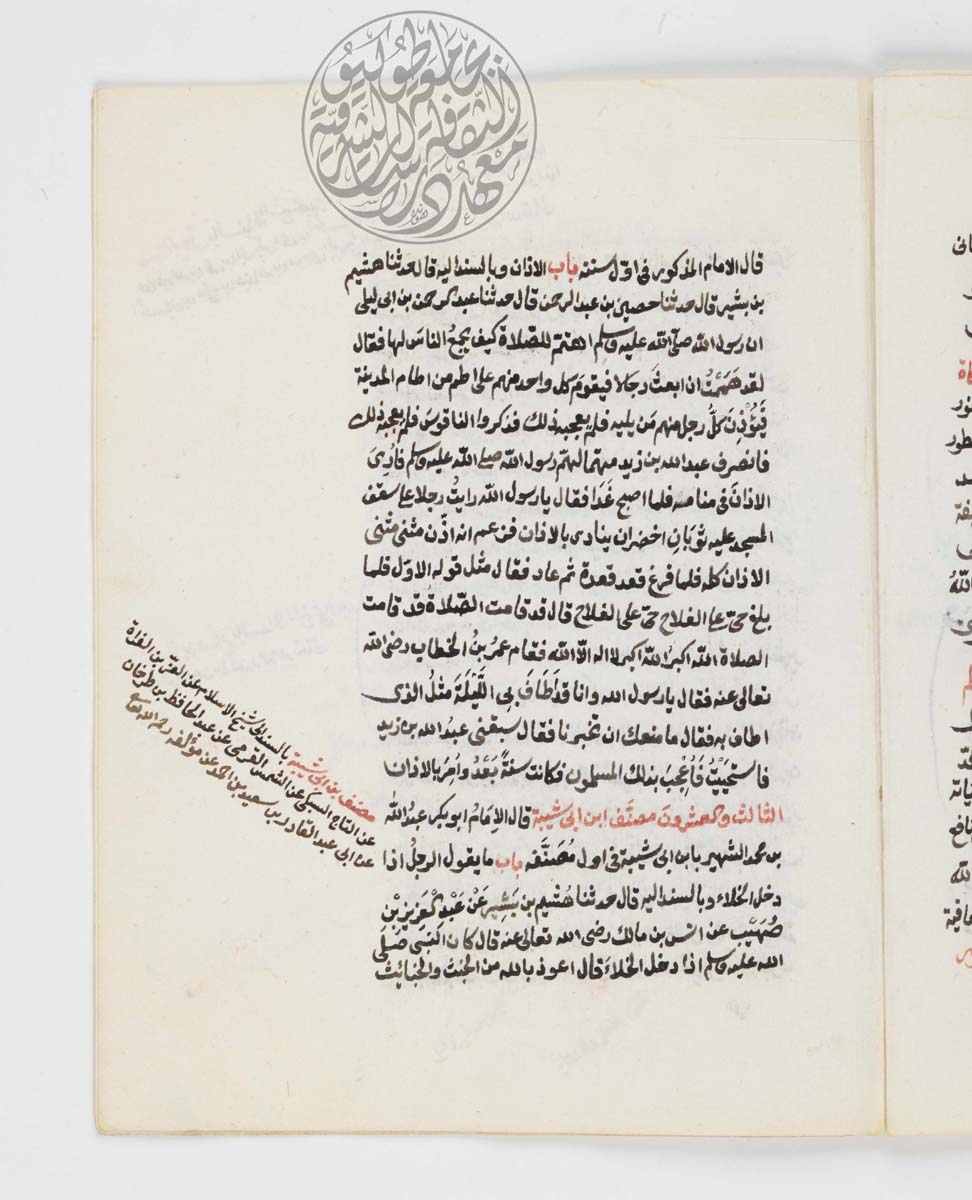 قال الامام المذكور فى اوّل سننه باب الاذان وبالسند اليه قال حدثنا هشيم
بن بشير قال حدثنا حصين بن عبد الرحمن قال حدثنا عبد الرحمن بن ابى ليلى
ان رسول الله صلى الله عليه وسلم اهتمّ للصّلاة كيف يجمعُ الناسَ لها فقال
لقد هَمَمْتُ ان ابعثَ رجالا فيقومَ كل واحد منهم على اطم من اطام المدينة
فَيُؤْذِنَ كلُّ رجل منهم مَن يليه فلم يعجبه ذلك فذكروا الناقوسَ فلم يعجبه ذلك
فانصرف عبد الله بن زيد مهتما لهمّ رسول الله صلى الله عليه وسلم فاُرِىَ
الاذانَ فى منامه فلما اصبح غَدَا فقال يا رسول الله رايتُ رجلا على سقف
المسجد عليه ثوبَانِ اخضران ينادى بالاذان فزعم انه اذّن مثنى مثنى
الاذان كله فلما فرغ قعد قعدة ثم عاد فقال مثل قوله الاوّل فلما
بلغ حىّ على الفلاح حىّ على الفلاح قال قد قامت الصّلاةُ قد قامت
الصلاة الله اكبر الله اكبر لا اله الّا الله فقام عمرُ بنُ الخطاب رضى الله
تعالى عنه فقال يا رسول الله وانا قد اَطَافَ بِى اللَّيْلَةَ مثلُ الذى
اطاف به فقال ما منعك ان تخبرنا فقال سبقنى عبدُ الله بن زيد
فاستحيَيْتُ فَاُعْجِبَ بذلك المسلمون فكانت سنةً بَعْدُ واُمِرَ بالاذان
الثالث والعشرون مصنّف ابن ابى شيبة قال الاِمَامُ ابو بكر عبدُ الله
بن محمد الشهير بابن ابى شيبة فى اول مُصَنَّفه باب ما يقول الرجلُ اذا
دخل الخلاء وبالسند اليه قال حدثنا هُشيم بن بَشِير عَنْ عَبْدِ الْعَزِيزِ بْنِ
صُهَيْب عن انس بن مالك رضى الله تعالى عنه قال كان النبىّ صَلَّى
الله عليه وسلم اذا دخل الخلاءَ قال اعوذ بالله من الخبث والخبائث
مصنف بن ابى شيبة بالسند الى شيخ الاسلام عن العزّ بن الفراة
عن التاج السبكى عن الشمس القرمى عن عبد الحافظ بن طرخان
عن ابى عبد القادر بن سعيد بن احمد عن مؤلفه رحمه الله تعالى